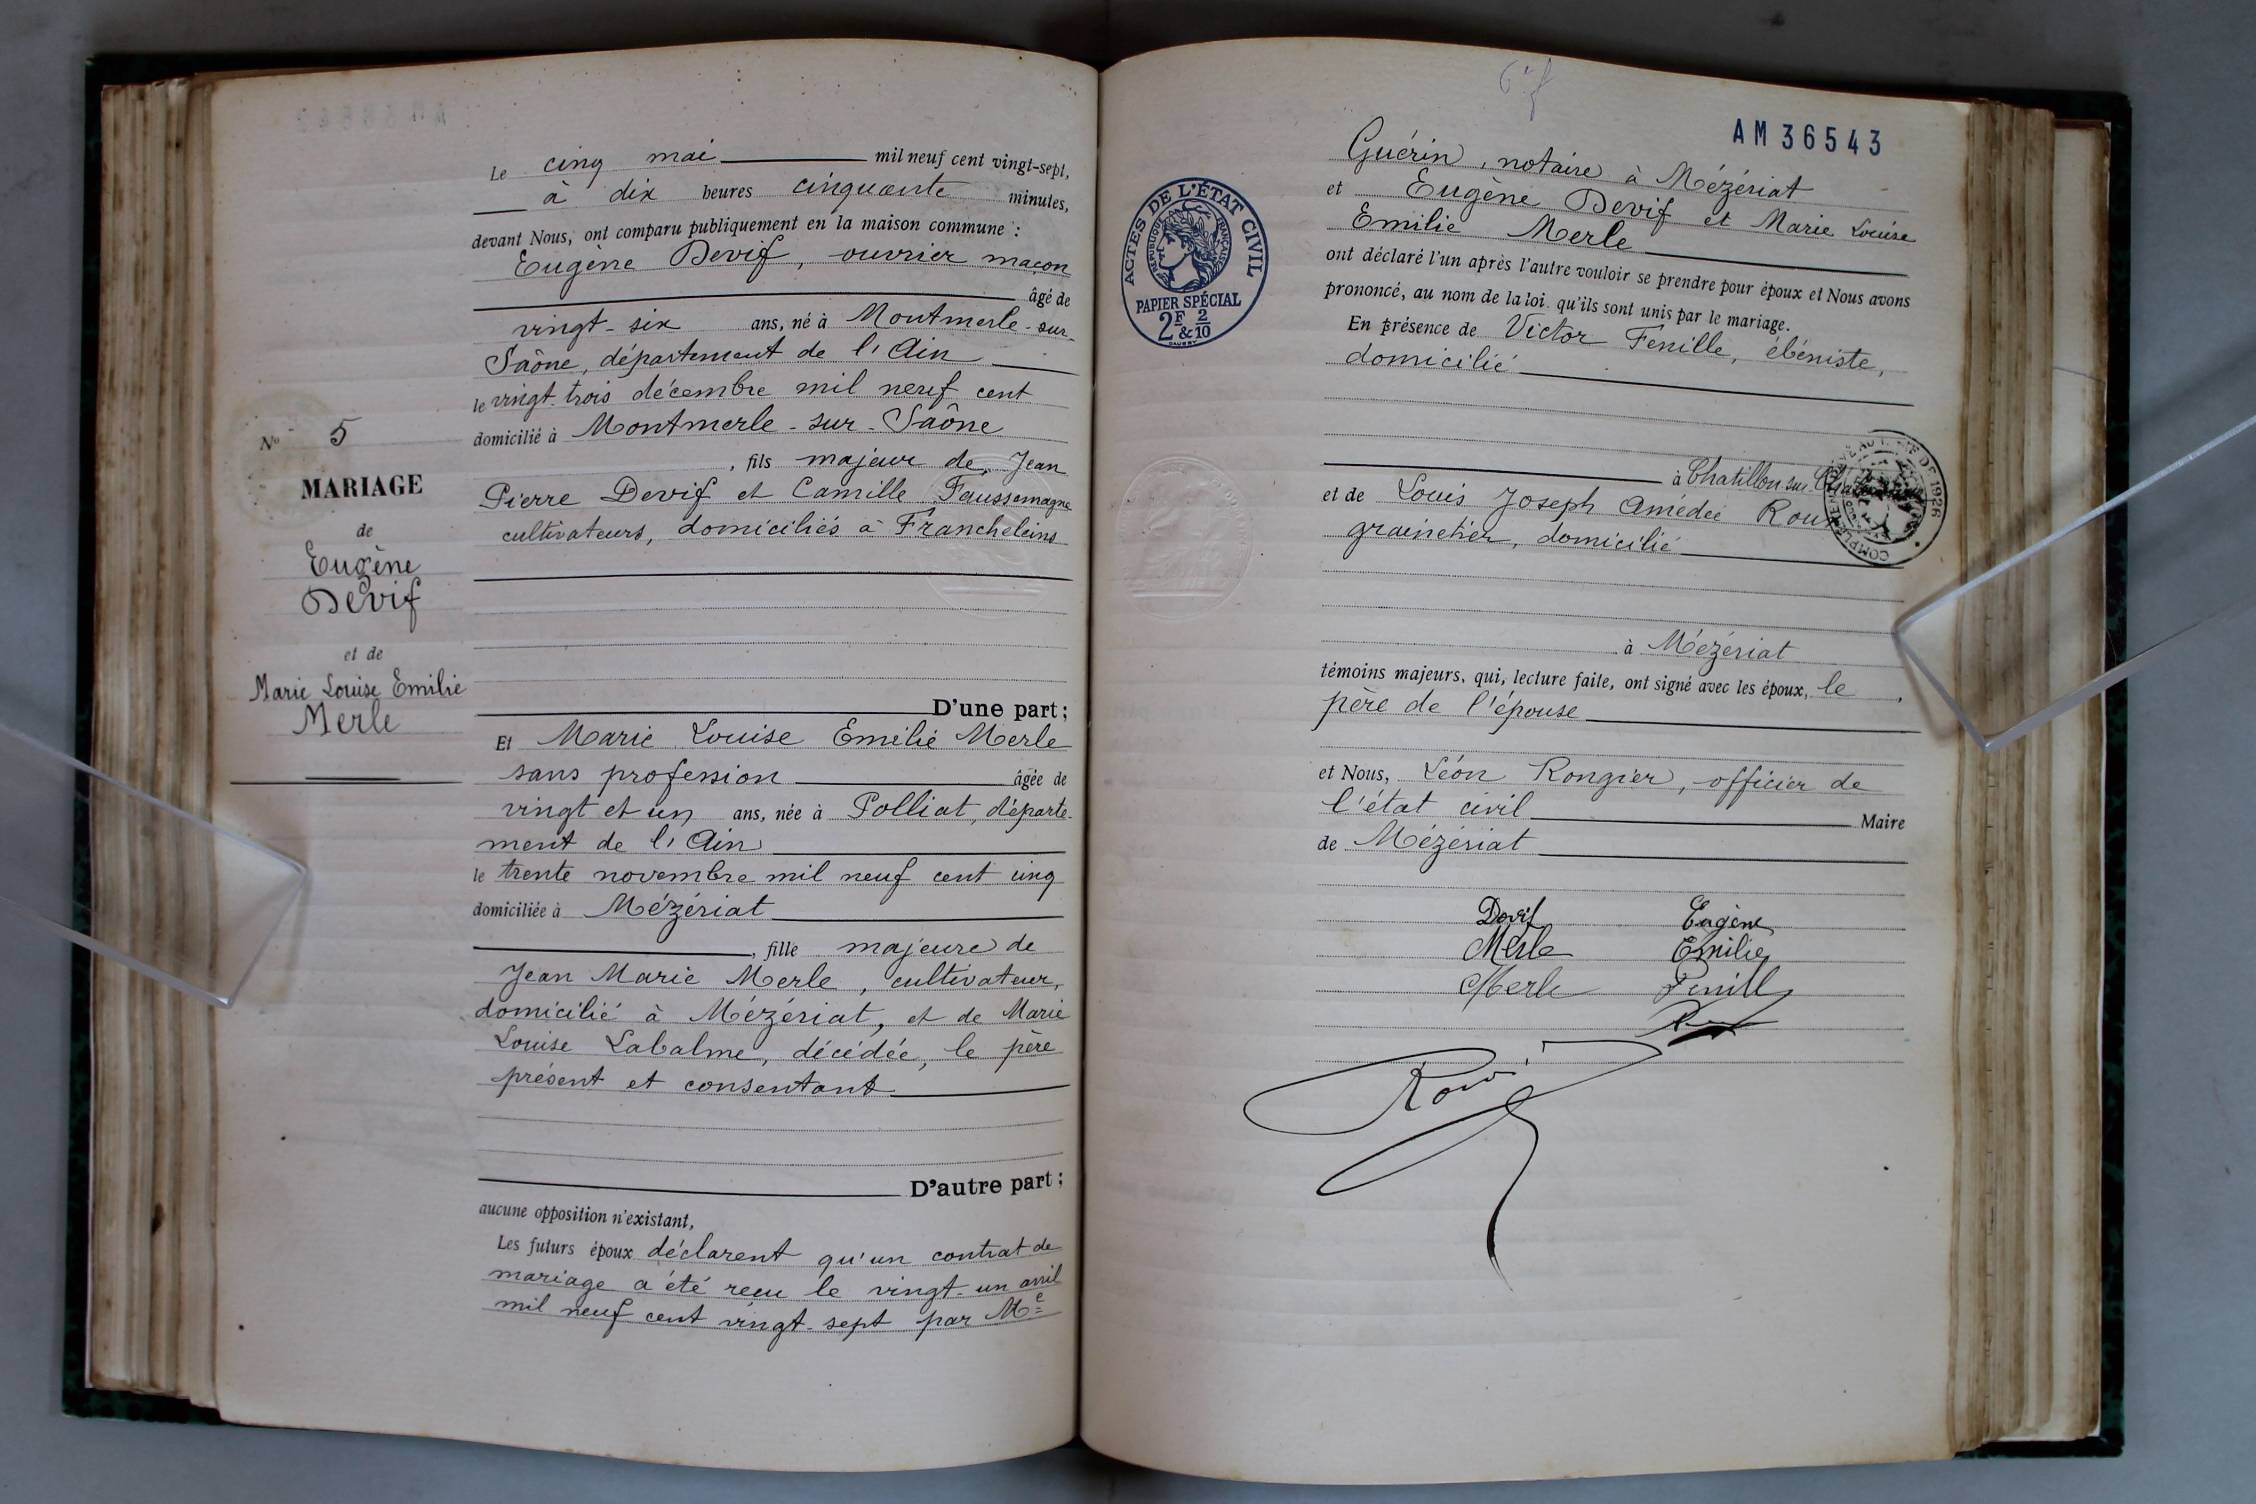 N° 5
MARIAGE
de
Eugène
Devif
et de
Marie Louise Emilie
Merle
Le cinq mai mil neuf cent vingt-sept,
à dix heures cinquante minutes,
devant Nous, ont comparu publiquement en la maison commune :
Eugène Devif, ouvrier maçon
âgé de
vingt-six ans, né à Montmerle-sur-
Saône, département de l'Ain
le vingt-trois décembre mil neuf cent
domicilié à Montmerle-sur-Saône
, fils majeur de, Jean
Pierre Devif et Camille Faussemagne
cultivateurs, domiciliés à Francheleins
D'une part ;
Et Marie Louise Emilie Merle
sans profession âgée de
vingt et un ans, née à Polliat, départe-
ment de l'Ain
le trente novembre mil neuf cent cinq
domiciliée à Mézériat
, fille majeure de
Jean Marie Merle, cultivateur,
domicilié à Mézériat, et de Marie
Louise Labalme, décédée, le père
présent et consentant
D'autre part ;
aucune opposition n'existant,
Les futurs époux déclarent qu'un contrat de
mariage a été reçu le vingt-un avril
mil neuf cent vingt-sept par Me
AM 36543
ACTES DE L'ÉTAT CIVIL
RÉPUBLIQUE FRANÇAISE
PAPIER SPÉCIAL
2F & 2/10
Guérin, notaire à Mézériat
et Eugène Devif et Marie Louise
Emilie Merle
ont déclaré l'un après l'autre vouloir se prendre pour époux et Nous avons
prononcé, au nom de la loi. qu'ils sont unis par le mariage.
En présence de Victor Fenille, ébéniste,
domicilié
à Chatillon sur
et de Louis Joseph Amédée
grainetier, domicilié
à Mézériat
témoins majeurs, qui, lecture faite, ont signé avec les époux, le
père de l'épouse
et Nous, Léon Rongier, officier de
l'état civil Maire
de Mézériat
Devif Eugène
Merle Emilie
Merle Fenill